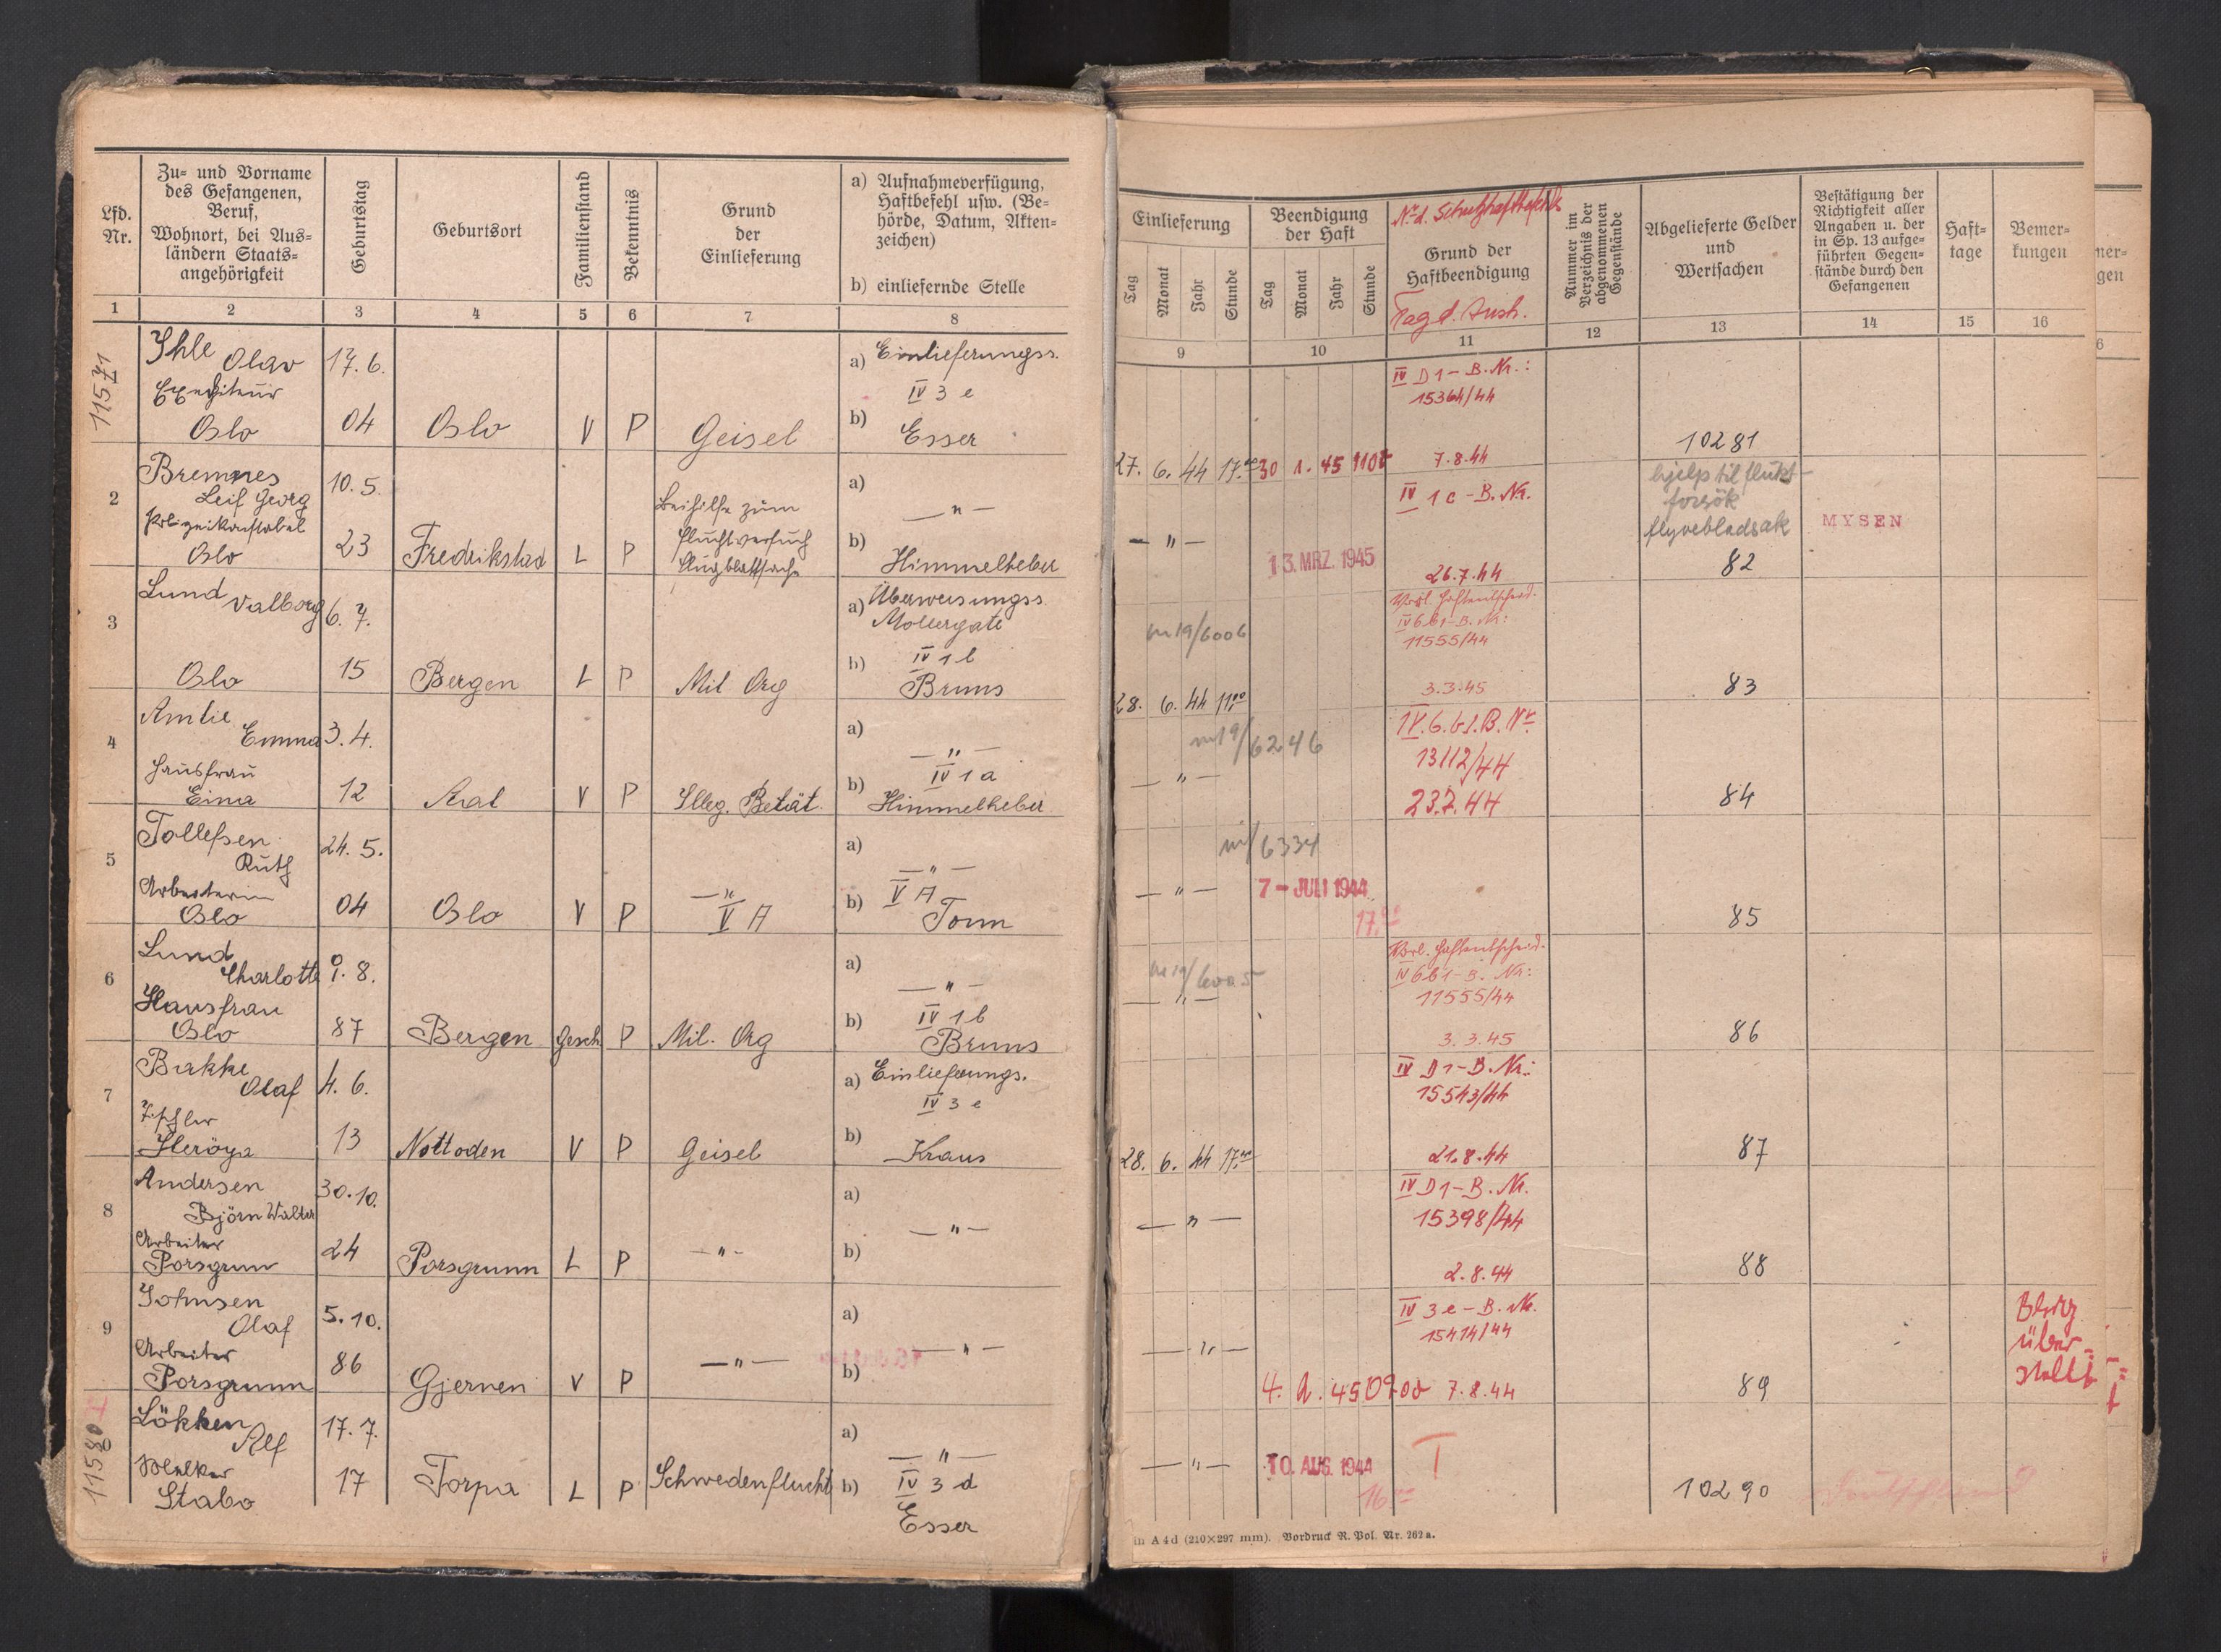 Lfd. Nr.
Zu- und Vorname
des Gefangenen,
Beruf,
Wohnort, bei Aus-
ländern Staats-
angehörigkeit
Geburtstag
Geburtsort
Familienstand
Bekenntnis
Grund
der
Einlieferung
a) Aufnahmeverfügung,
Haftbefehl usw. (Be-
hörde, Datum, Akten-
zeichen)
b) einliefernde Stelle
1 2 3 4 5 6 7 8
11571
Ihle Olav 17.6. a) Einlieferungss.
IV 3 e
Oslo 04 Oslo V P Geisel b) Esser
2 Bremnes 10.5. a)
Leif Georg Beihilfe zum — " —
Polizeikonstabel Fluchtversuch b)
Oslo 23 Fredrikstad L P Flugblattsache Himmelheber
3 Lund Valborg 6.7. a) Überweisungss.
Mollergate
IV 1 b
Oslo 15 Bergen L P Mil Org b) Bruns
4 Amlie
Emma 3.4. a) — " —
Hausfrau IV 1 a
Eina 12 Aal V P Illeg. Betät. b) Himmelheber
5 Tollefsen 24.5. a)
Ruth — " —
Arbeiterin — " — V A
Oslo 04 Oslo V P V A b)
6 Lund a)
Charlotte 1.8. — " —
Hausfrau IV 1 b
Oslo 87 Bergen Gesch P Mil. Org b) Bruns
7 Bakke a) Einlieferungs.
Olaf 4.6. IV 3 e
Heröya 13 Nottoden V P Geisel b) Kraus
8 Andersen 30.10. a)
Björn Walter — " —
Arbeiter
Porsgrunn 24 Porsgrunn L P — " — b)
9 Johnsen
Olaf 5.10. a)
Arbeiter — " — — " —
Porsgrunn 86 Gjernen V P b)
11580
Lökken 17.7. a)
Alf — " —
Melker IV 3 d
Stabo 17 Torpa L P Schwedenflucht b) Esser
Einlieferung
Tag Monat Jahr Stunde
Beendigung
der Haft
Tag Monat Jahr Stunde
Nr. d. Schutzhaftbefehls
Grund der
Haftbeendigung
Tag d. Aush.
Nummer im
Verzeichnis der
abgenommenen
Gegenstände
Abgelieferte Gelder
und
Wertsachen
Bestätigung der
Richtigkeit aller
Angaben u. der
in Sp. 13 aufge-
führten Gegen-
stände durch den
Gefangenen
Haft-
tage
Bemer-
kungen
9 10 11 12 13 14 15 16
IV D 1 – B. Nr.:
15364/44
10281
27. 6. 44 17.00 30 1. 45 1100 7.8.44
hjelp til flukt-
forsök
flyvebladsak
IV 1 c – B. Nr.
MYSEN
— " —
13. MRZ. 1945
26.7.44
82
Vorl. Haftentscheid.
IV 6 b 1 – B. Nr:
11555/44
m 19/6006
3.3.45
83
28. 6. 44 11.00
IV.6.b1.B.Nr.
m19/6246
13112/44
— " —
23.7.44
84
m/6334
— " — 7 – JULI 1944
17.00
85
Vorl. Haftentscheid.
IV 6 b 1 – B. Nr:
11555/44
m 19/6005
— " —
3.3.45
86
IV D 1 – B. Nr.:
15543/44
28. 6. 44 17.00 21.8.44
87
IV D 1 – B. Nr.
15398/44
— " —
2.8.44
88
IV 3 e – B. Nr.
15414/44
— " —
über-
stellt
4. 2. 45 0900 7.8.44
89
— " — 10. AUG. 1944 T
16.00
10290
in A 4 d (210×297 mm). Vordruck R. Pol. Nr. 262 a.
mer-
gen
6